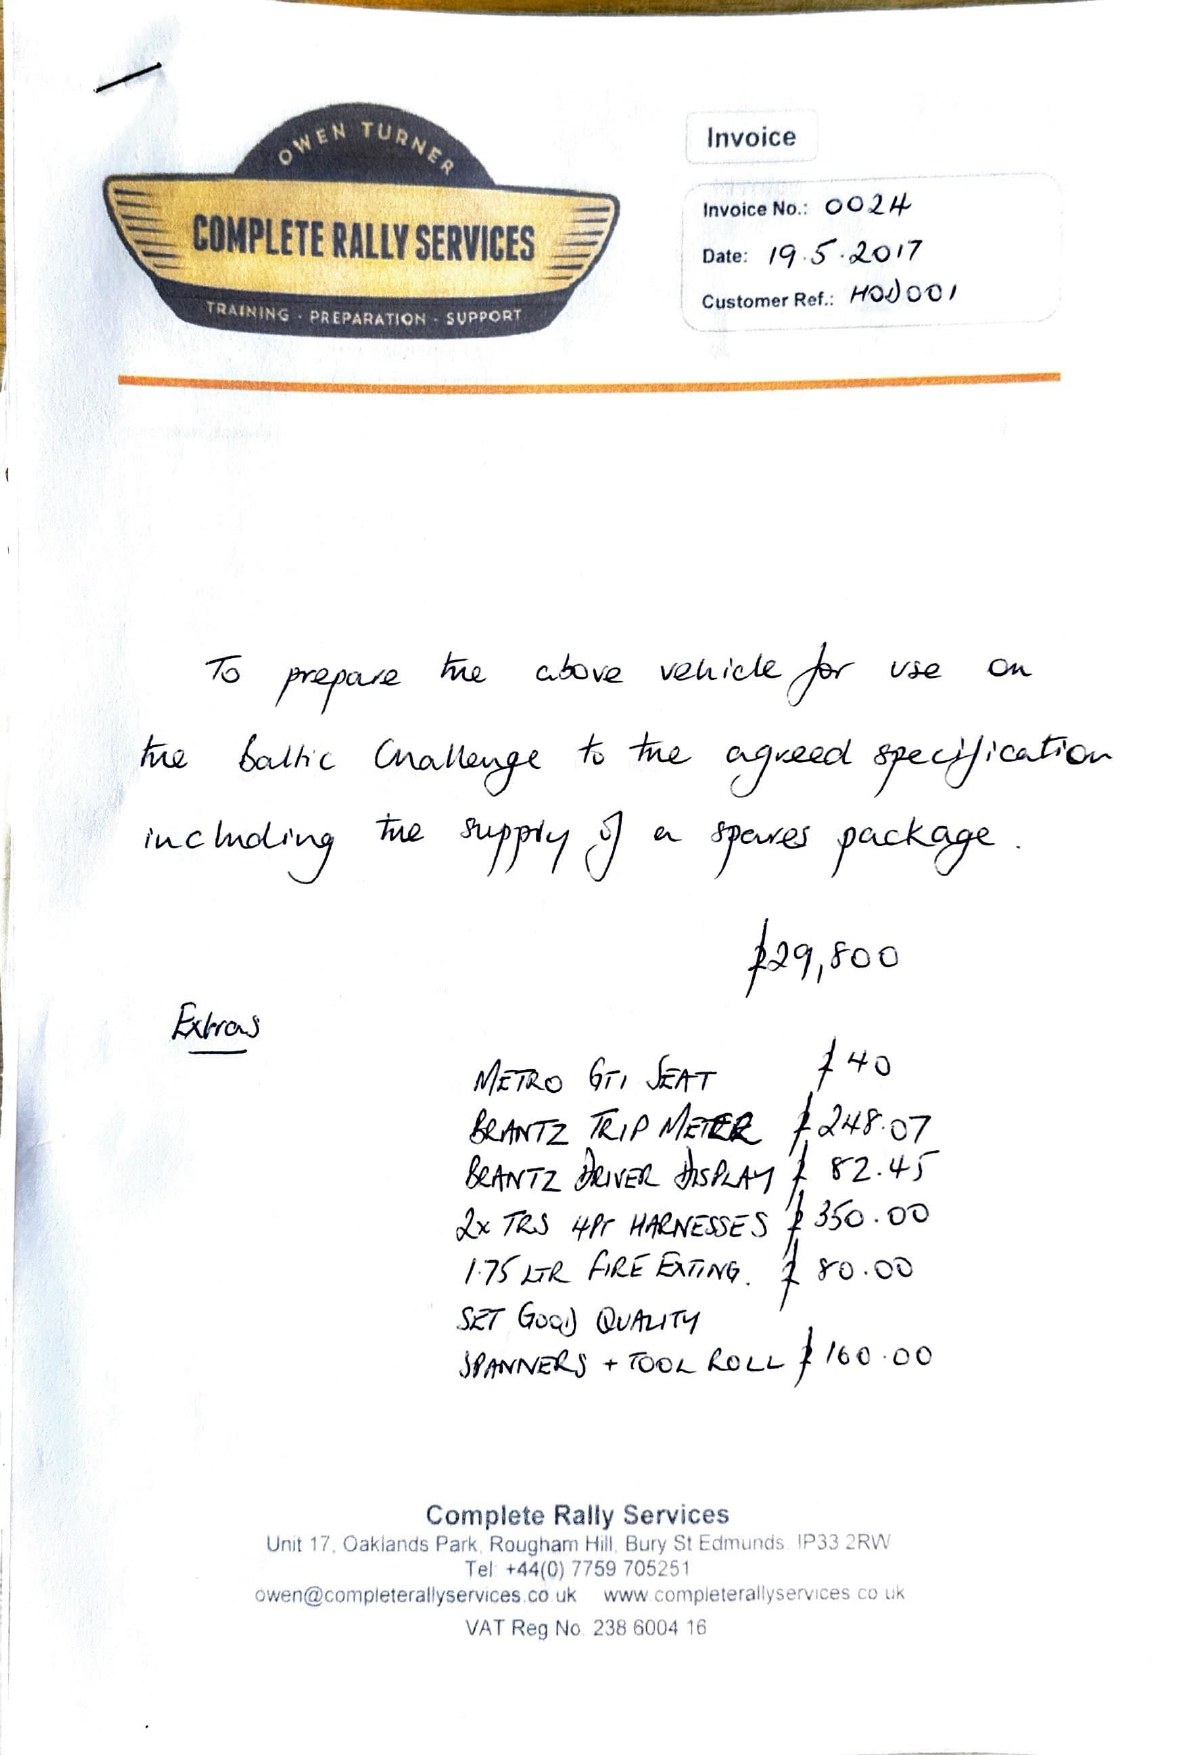 OWEN TURNER
COMPLETE RALLY SERVICES
TRAINING - PREPARATION - SUPPORT
Invoice
Invoice No.: 0024
Date: 19.5.2017
Customer Ref.: HOD001
To prepare the above vehicle for use on
the Baltic Challenge to the agreed specification
including the supply of a spares package.
£29,800
Extras
METRO GTI SEAT £40
BRANTZ TRIP METER £248.07
BRANTZ DRIVER DISPLAY £82.45
2x TRS 4PT HARNESSES £350.00
1.75 LTR FIRE EXTING. £80.00
SET GOOD QUALITY
SPANNERS + TOOL ROLL £160.00
Complete Rally Services
Unit 17, Oaklands Park, Rougham Hill, Bury St Edmunds. IP33 2RW
Tel: +44(0) 7759 705251
owen@completerallyservices.co.uk www.completerallyservices.co.uk
VAT Reg No. 238 6004 16